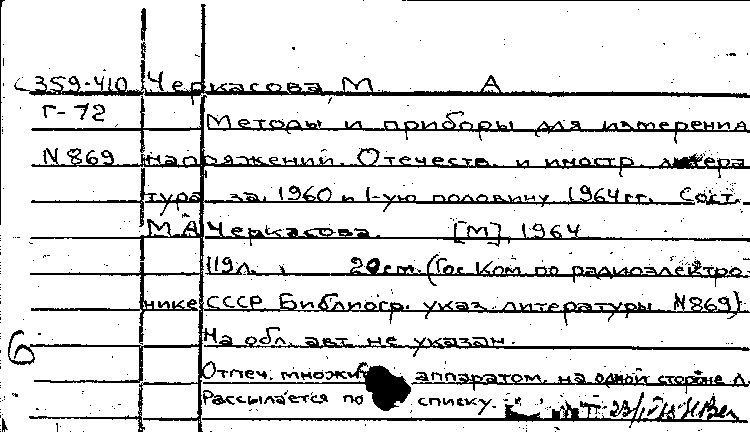 С359-410 Черкасова, М А
Г-72 Методы и приборы для измерения
N 869 напряжений. Отечеств. и иностр. литера
тура за 1960 и 1-ую половину 1964 гг. Сост.
М.А. Черкасова. [М], 1964
119 л. 20 см. (Гос. Ком. по радиоэлектро-
нике СССР. Библиогр. указ. литературы N 869)
На обл. авт. не указан.
Отпеч. множит аппаратом, на одной стороне л.
Рассылается по списку.
6